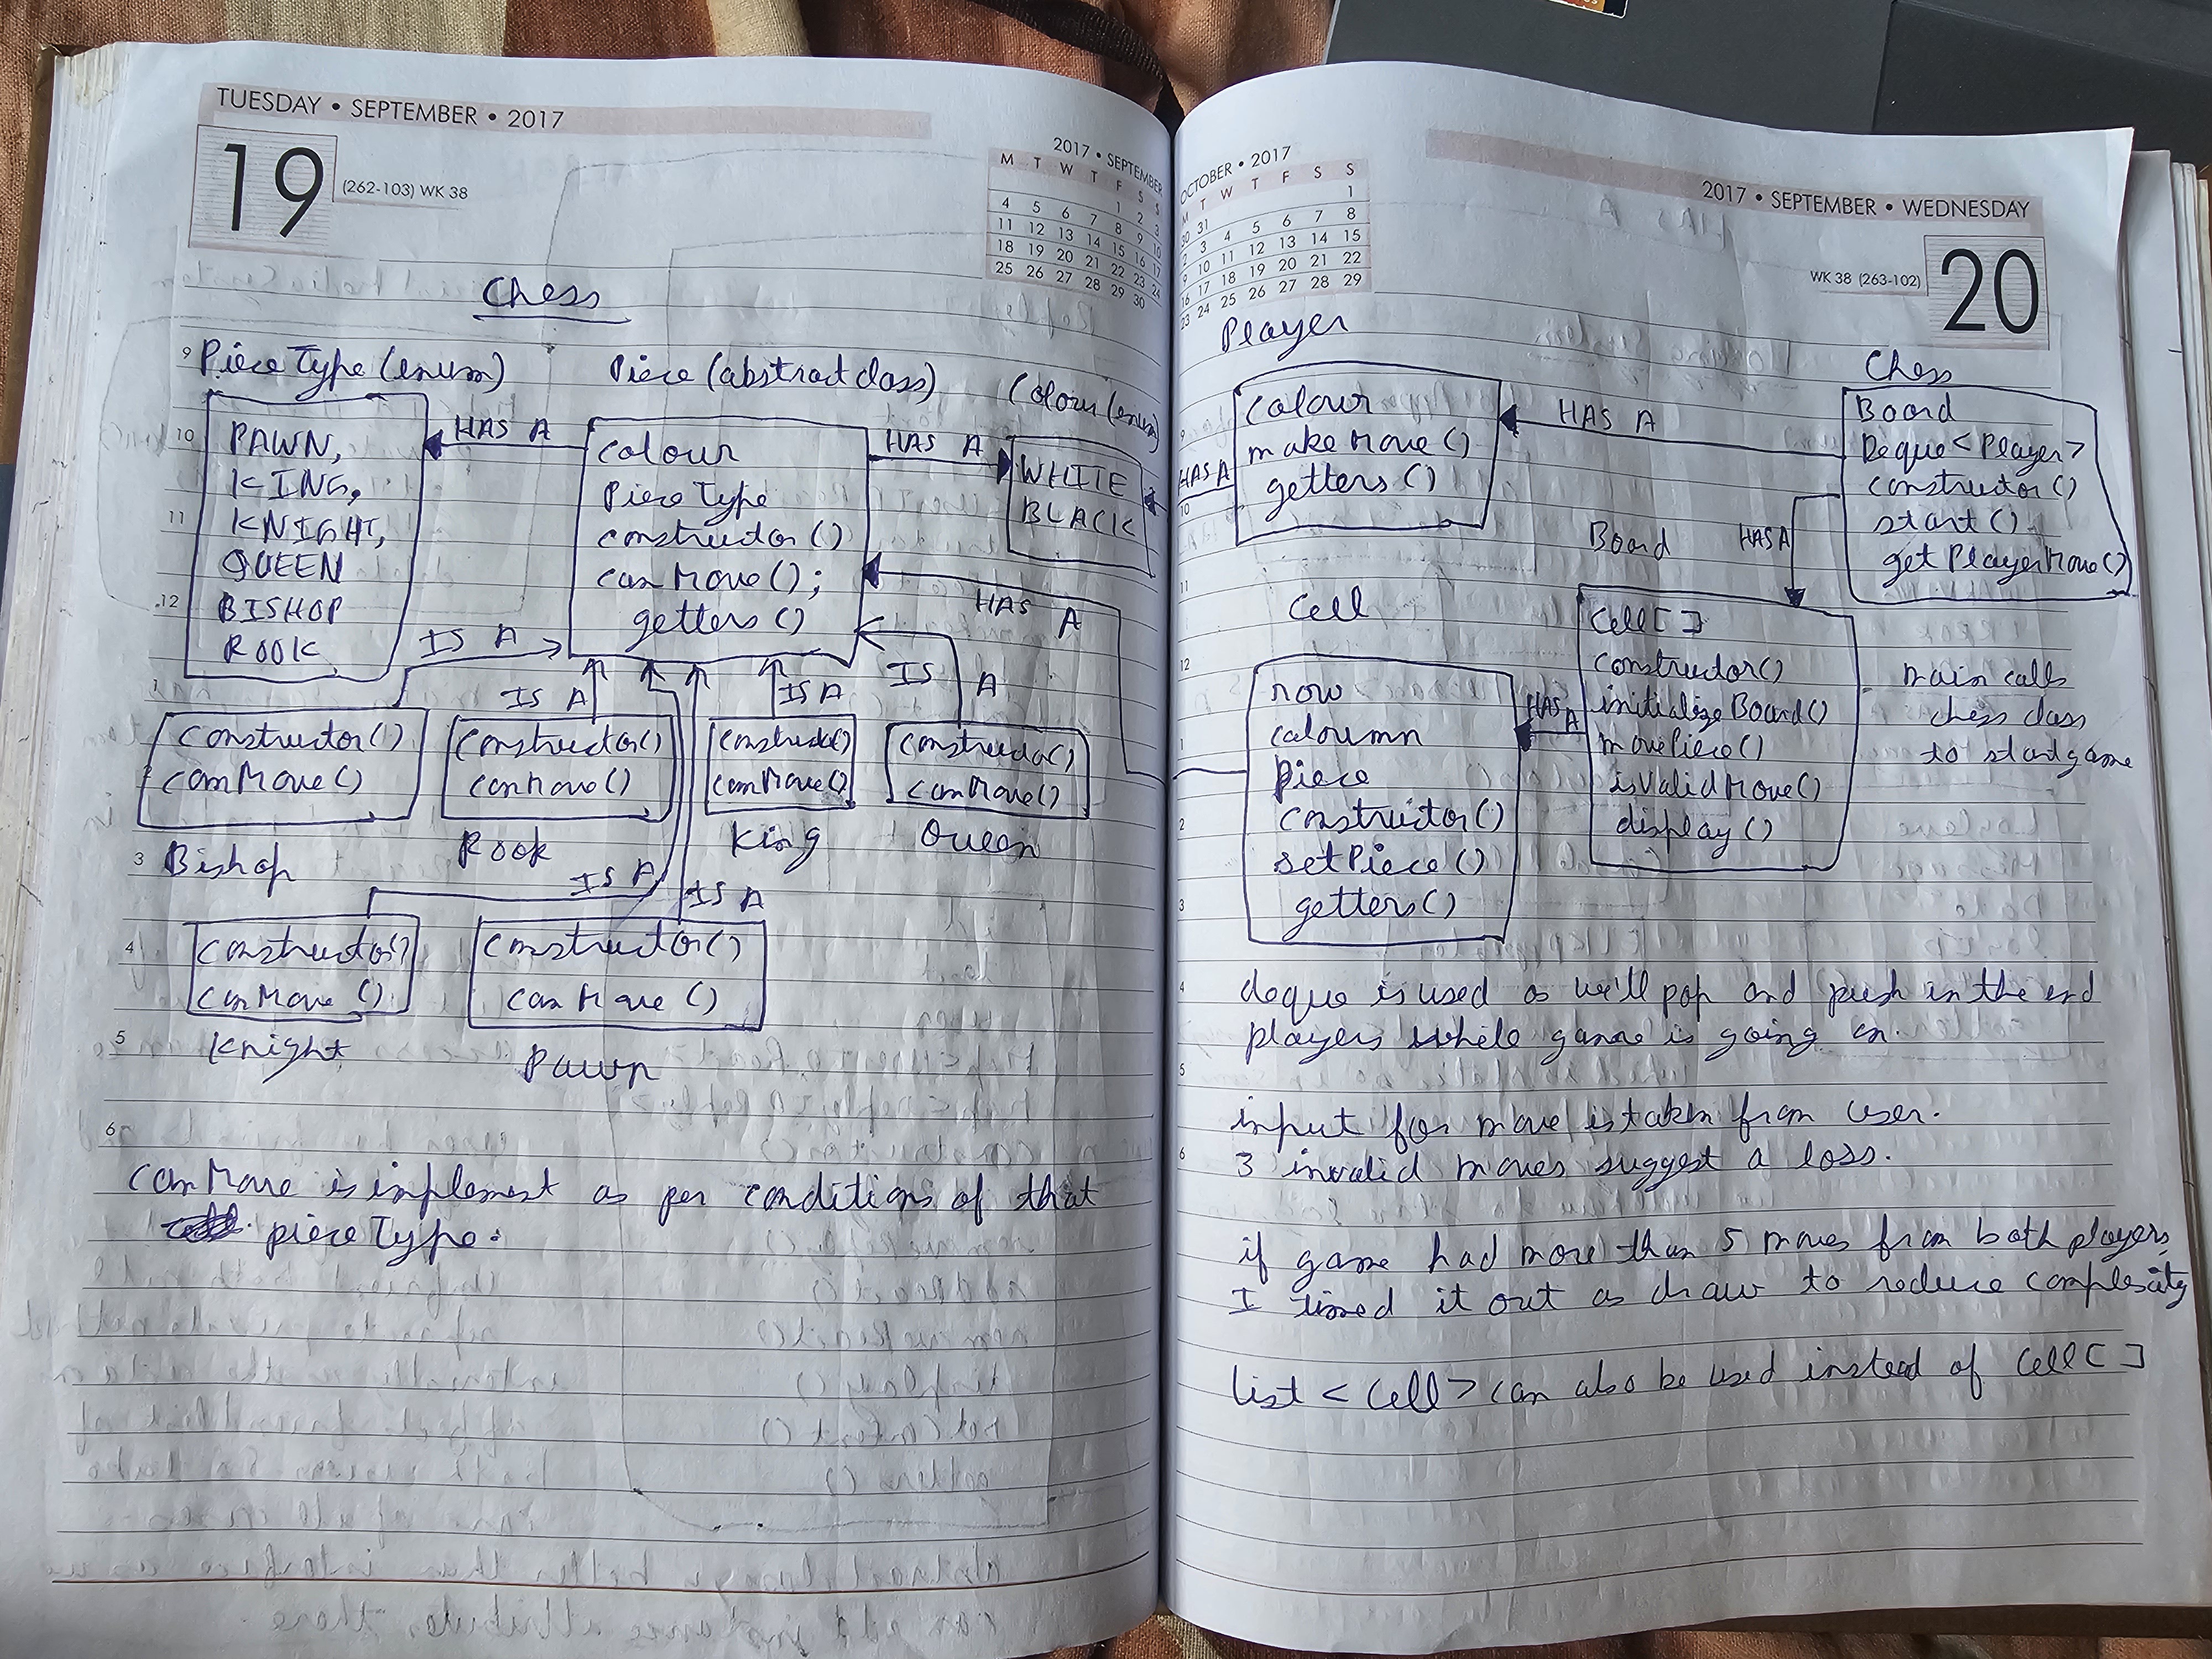 TUESDAY • SEPTEMBER • 2017
19
(262-103) WK 38
2017 • SEPTEMBER
M T W T F S S
1 2 3
4 5 6 7 8 9 10
11 12 13 14 15 16 17
18 19 20 21 22 23 24
25 26 27 28 29 30
Chess
PieceType (enum)
PAWN,
KING,
KNIGHT,
QUEEN
BISHOP
ROOK
HAS A
Piece (abstract class)
colour
PieceType
constructor()
canMove();
getters()
HAS A
Colour (enum)
WHITE
BLACK
HAS A
IS A
IS A
IS A
IS A
constructor()
canMove()
Bishop
constructor()
canMove()
Rook
constructor()
canMove()
King
constructor()
canMove()
Queen
IS A
IS A
constructor()
canMove()
Knight
constructor()
canMove()
Pawn
9
10
11
12
1
2
3
4
5
6
canMove is implement as per conditions of that
pieceType.
OCTOBER • 2017
M T W T F S S
30 31 1
2 3 4 5 6 7 8
9 10 11 12 13 14 15
16 17 18 19 20 21 22
23 24 25 26 27 28 29
2017 • SEPTEMBER • WEDNESDAY
WK 38 (263-102)
20
Player
colour
makeMove()
getters()
HAS A
HAS A
Chess
Board
Deque<Player>
constructor()
start()
getPlayerMove()
HAS A
Board
Cell[]
constructor()
initializeBoard()
movePiece()
isValidMove()
display()
HAS A
Cell
row
caloumn
piece
constructor()
setPiece()
getters()
main calls
chess class
to start game
9
10
11
12
1
2
3
4
5
6
deque is used as we'll pop and push in the end
players while game is going on.
input for move is taken from user.
3 invalid moves suggest a loss.
if game had more than 5 moves from both players,
I timed it out as draw to reduce complexity
list <Cell> can also be used instead of Cell[]